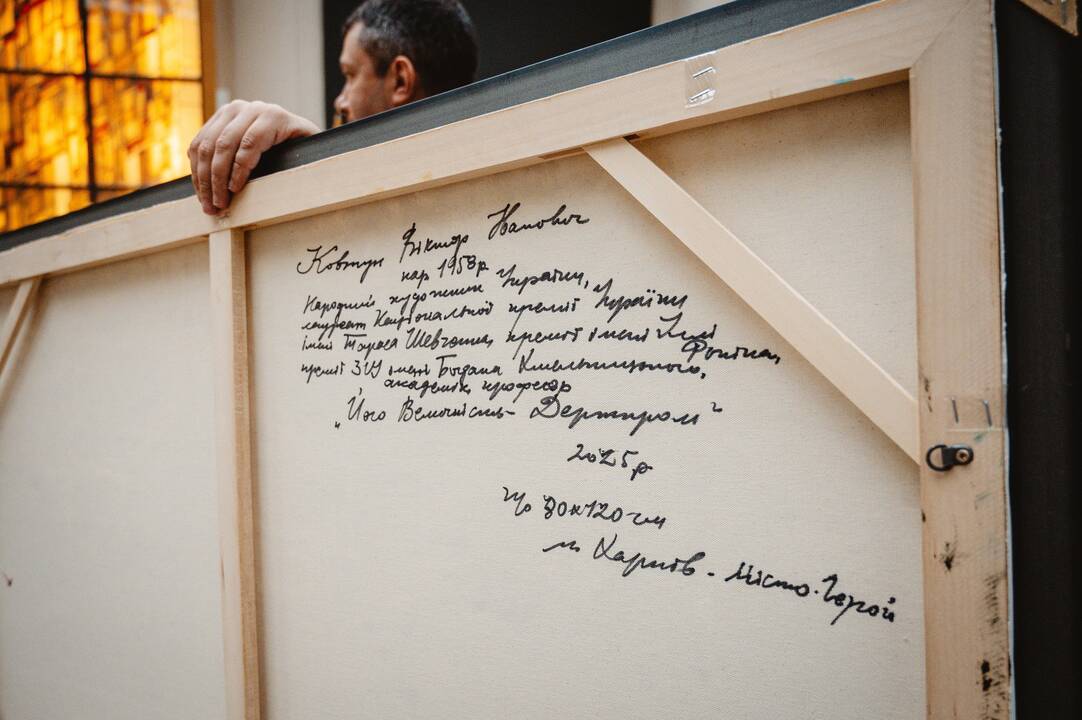 Ковтун Віктор Іванович
нар 1958р
Народний художник України,
лауреат Національної премії України
імені Тараса Шевченка, премії імені Іллі
Рєпіна,
премії ЗУУ імені Богдана Хмельницького,
академік, професор
„Його Величність Держпром"
2025р
80х120см
м Харків - місто-Герой